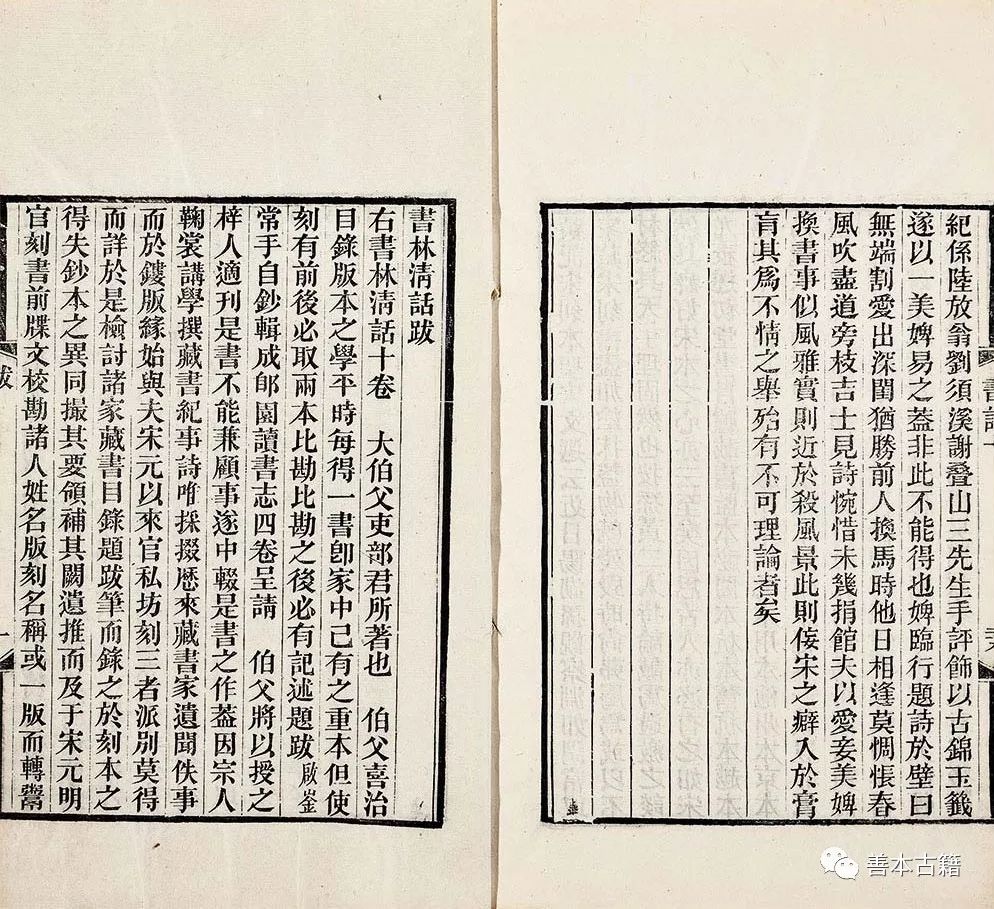 紀係陸放翁劉須溪謝疊山三先生手評飾以古錦玉籤
遂以一美婢易之蓋非此不能得也婢臨行題詩於壁曰
無端割愛出深閨猶勝前人換馬時他日相逢莫惆悵春
風吹盡道旁枝吉士見詩惋惜未幾捐館夫以愛妾美婢
換書事似風雅實則近於殺風景此則佞宋之癖入於膏
肓其爲不情之舉殆有不可理論者矣
書林清話跋
右書林清話十卷 大伯父吏部君所著也 伯父喜治
目錄版本之學平時每得一書卽家中已有之重本但使
刻有前後必取兩本比勘比勘之後必有記述題跋啟崟
常手自鈔輯成郋園讀書志四卷呈請 伯父將以授之
梓人適刊是書不能兼顧事遂中輟是書之作蓋因宗人
鞠裳講學撰藏書紀事詩唯採掇厯來藏書家遺聞佚事
而於鏤版緣始與夫宋元以來官私坊刻三者派別莫得
而詳於是檢討諸家藏書目錄題跋筆而錄之於刻本之
得失鈔本之異同撮其要領補其闕遺推而及于宋元明
官刻書前牒文校勘諸人姓名版刻名稱或一版而轉鬻
跋
一
善本古籍